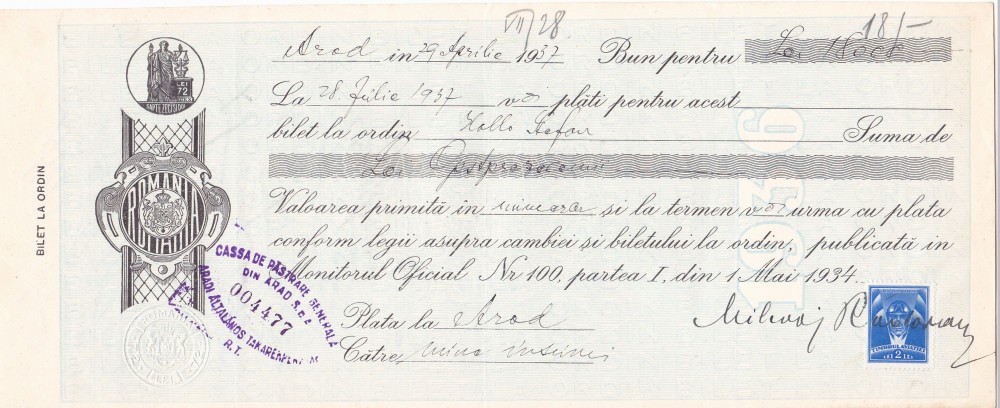 VII/28
18/-
Arad in 29 Aprilie 1937 Bun pentru Lei
La 28. Iulie 1937 voi plăti pentru acest
bilet la ordin Suma de
Lei
Valoarea primită în numerar și la termen voi urma cu plata
conform legii asupra cambiei și biletului la ordin, publicată in
Monitorul Oficial Nr 100, partea I, din 1 Mai 1934
Plata la Arad
Către mine însumi
BILET LA ORDIN
LEI
72
ŞAPTEZECISIDOI
ROMANIA
1936
CASSA DE PĂSTRARE GENERALĂ
DIN ARAD S.P.A.
004477
ARADI ÁLTALÁNOS TAKARÉKPÉNZTÁR
R.T.
TIMBRUL AVIAȚIEI
LEI 2 LEI